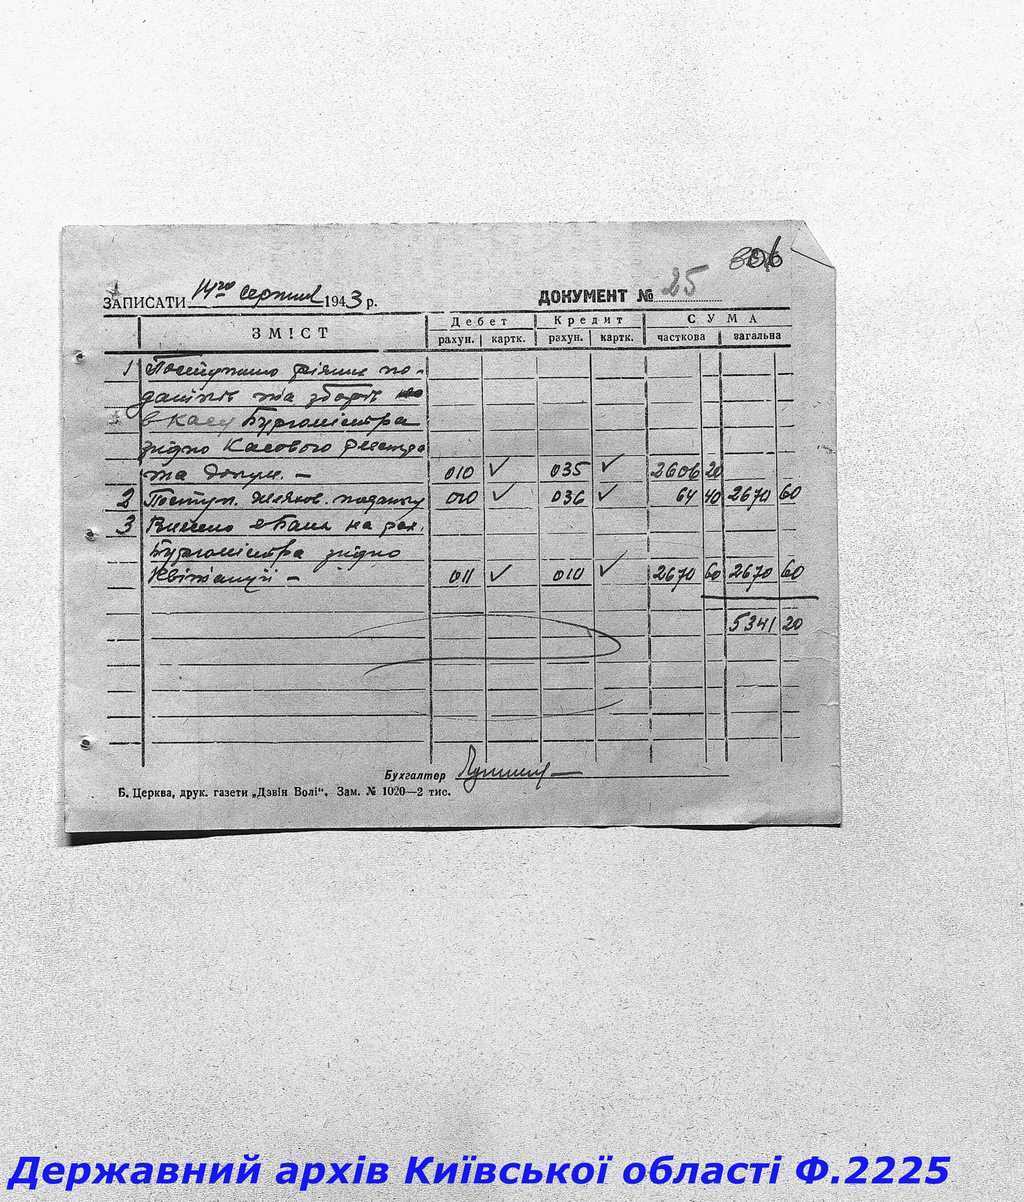 ЗАПИСАТИ 14го серпня 1943 р.
ДОКУМЕНТ № 25
ЗМІСТ Дебет Кредит СУМА
рахун. картк. рахун. картк. часткова загальна
1 Поступило різних по-
датків та зборів
в касу Бургомістра
згідно Касового
та докум. — 010 ✓ 035 ✓ 2606 20
2 Поступ. податку 010 ✓ 036 ✓ 64 40 2670 60
3 Внесено в Банк на рах.
Бургомістра згідно
Квітанції — 011 ✓ 010 ✓ 2670 60 2670 60
5341 20
Бухгалтер
Б. Церква, друк. газети „Дзвін Волі". Зам. № 1020—2 тис.
Державний архів Київської області Ф.2225